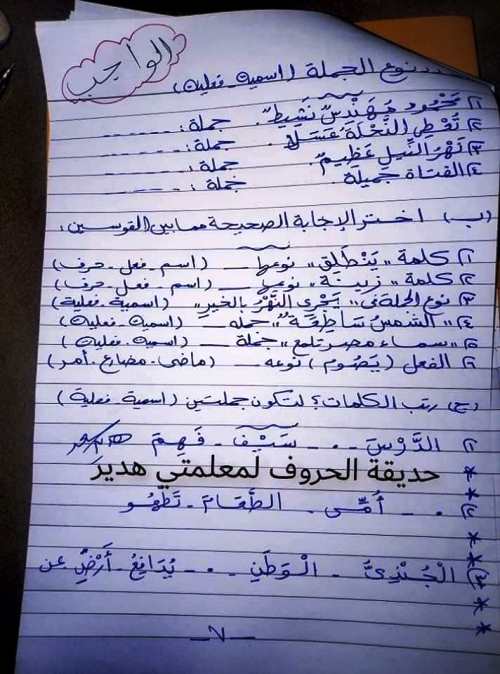 الواجب
نوع الجملة (اسمية - فعلية)
١) مَحْمُود مُهَنْدِسٌ نَشِيطٌ. جملة:
٢) تُعْطِي النَّحْلَةُ عَسَلًا. جملة:
٣) نَهْرُ النِّيلِ عَظِيمٌ. جملة:
٤) الفَتَاة جَمِيلَة. جملة:
(ب) اختر الإجابة الصحيحة مما بين القوسين:
١) كلمة "يَنْطَلِق" نوعها (اسم - فعل - حرف)
٢) كلمة "زِينَة" نوعها (اسم - فعل - حرف)
٣) نوع الجملة في "يَجْرِي النَّهْرُ بِالخيرِ" (اسمية - فعلية)
٤) "الشَّمْسُ سَاطِعَة" جملة (اسمية - فعلية)
٥) "سماء مصر تلمع" جملة (اسمية - فعلية)
٦) الفعل (يَصُوم) نوعه (ماضى - مضارع - أمر)
(ج) رتب الكلمات؛ لتكون جملتين (اسمية - فعلية)
١) الدَّرْسَ - سَيْف - فَهِمَ
حديقة الحروف لمعلمتي هدير
٢) أُمِّى - الطَّعَامَ - تَطْهُو
٣) الْجُنْدِىُّ - الْوَطَنِ - يُدَافِعُ - أَرْضِ عن